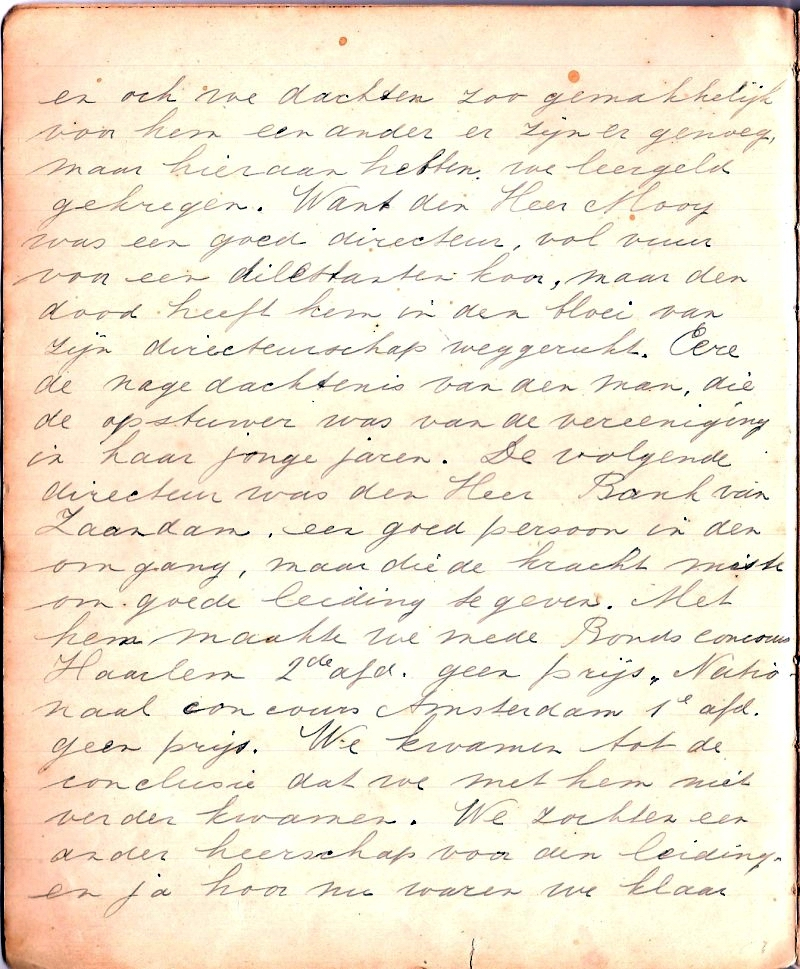 en och we dachten zoo gemakkelijk
voor hem een ander er zijn er genoeg,
maar hieraan hebben we leergeld
gekregen. Want den Heer Mooy
was een goed directeur, vol vuur
voor een dilettanten koor, maar den
dood heeft hem in den bloei van
zijn directeurschap weggerukt. Eere
de nagedachtenis van den man, die
de opstuwer was van de vereeniging
in haar jonge jaren. De volgende
directeur was den Heer Bank van
Zaandam, een goed persoon in den
omgang, maar die de kracht miste
om goede leiding te geven. Met
hem maakte we mede Bondsconcours
Haarlem 2de afd. geen prijs, Natio-
naal concours Amsterdam 1e afd.
geen prijs. We kwamen tot de
conclusie dat we met hem niet
verder kwamen. We zochten een
ander heerschap voor den leiding.
en ja hoor nu waren we klaar